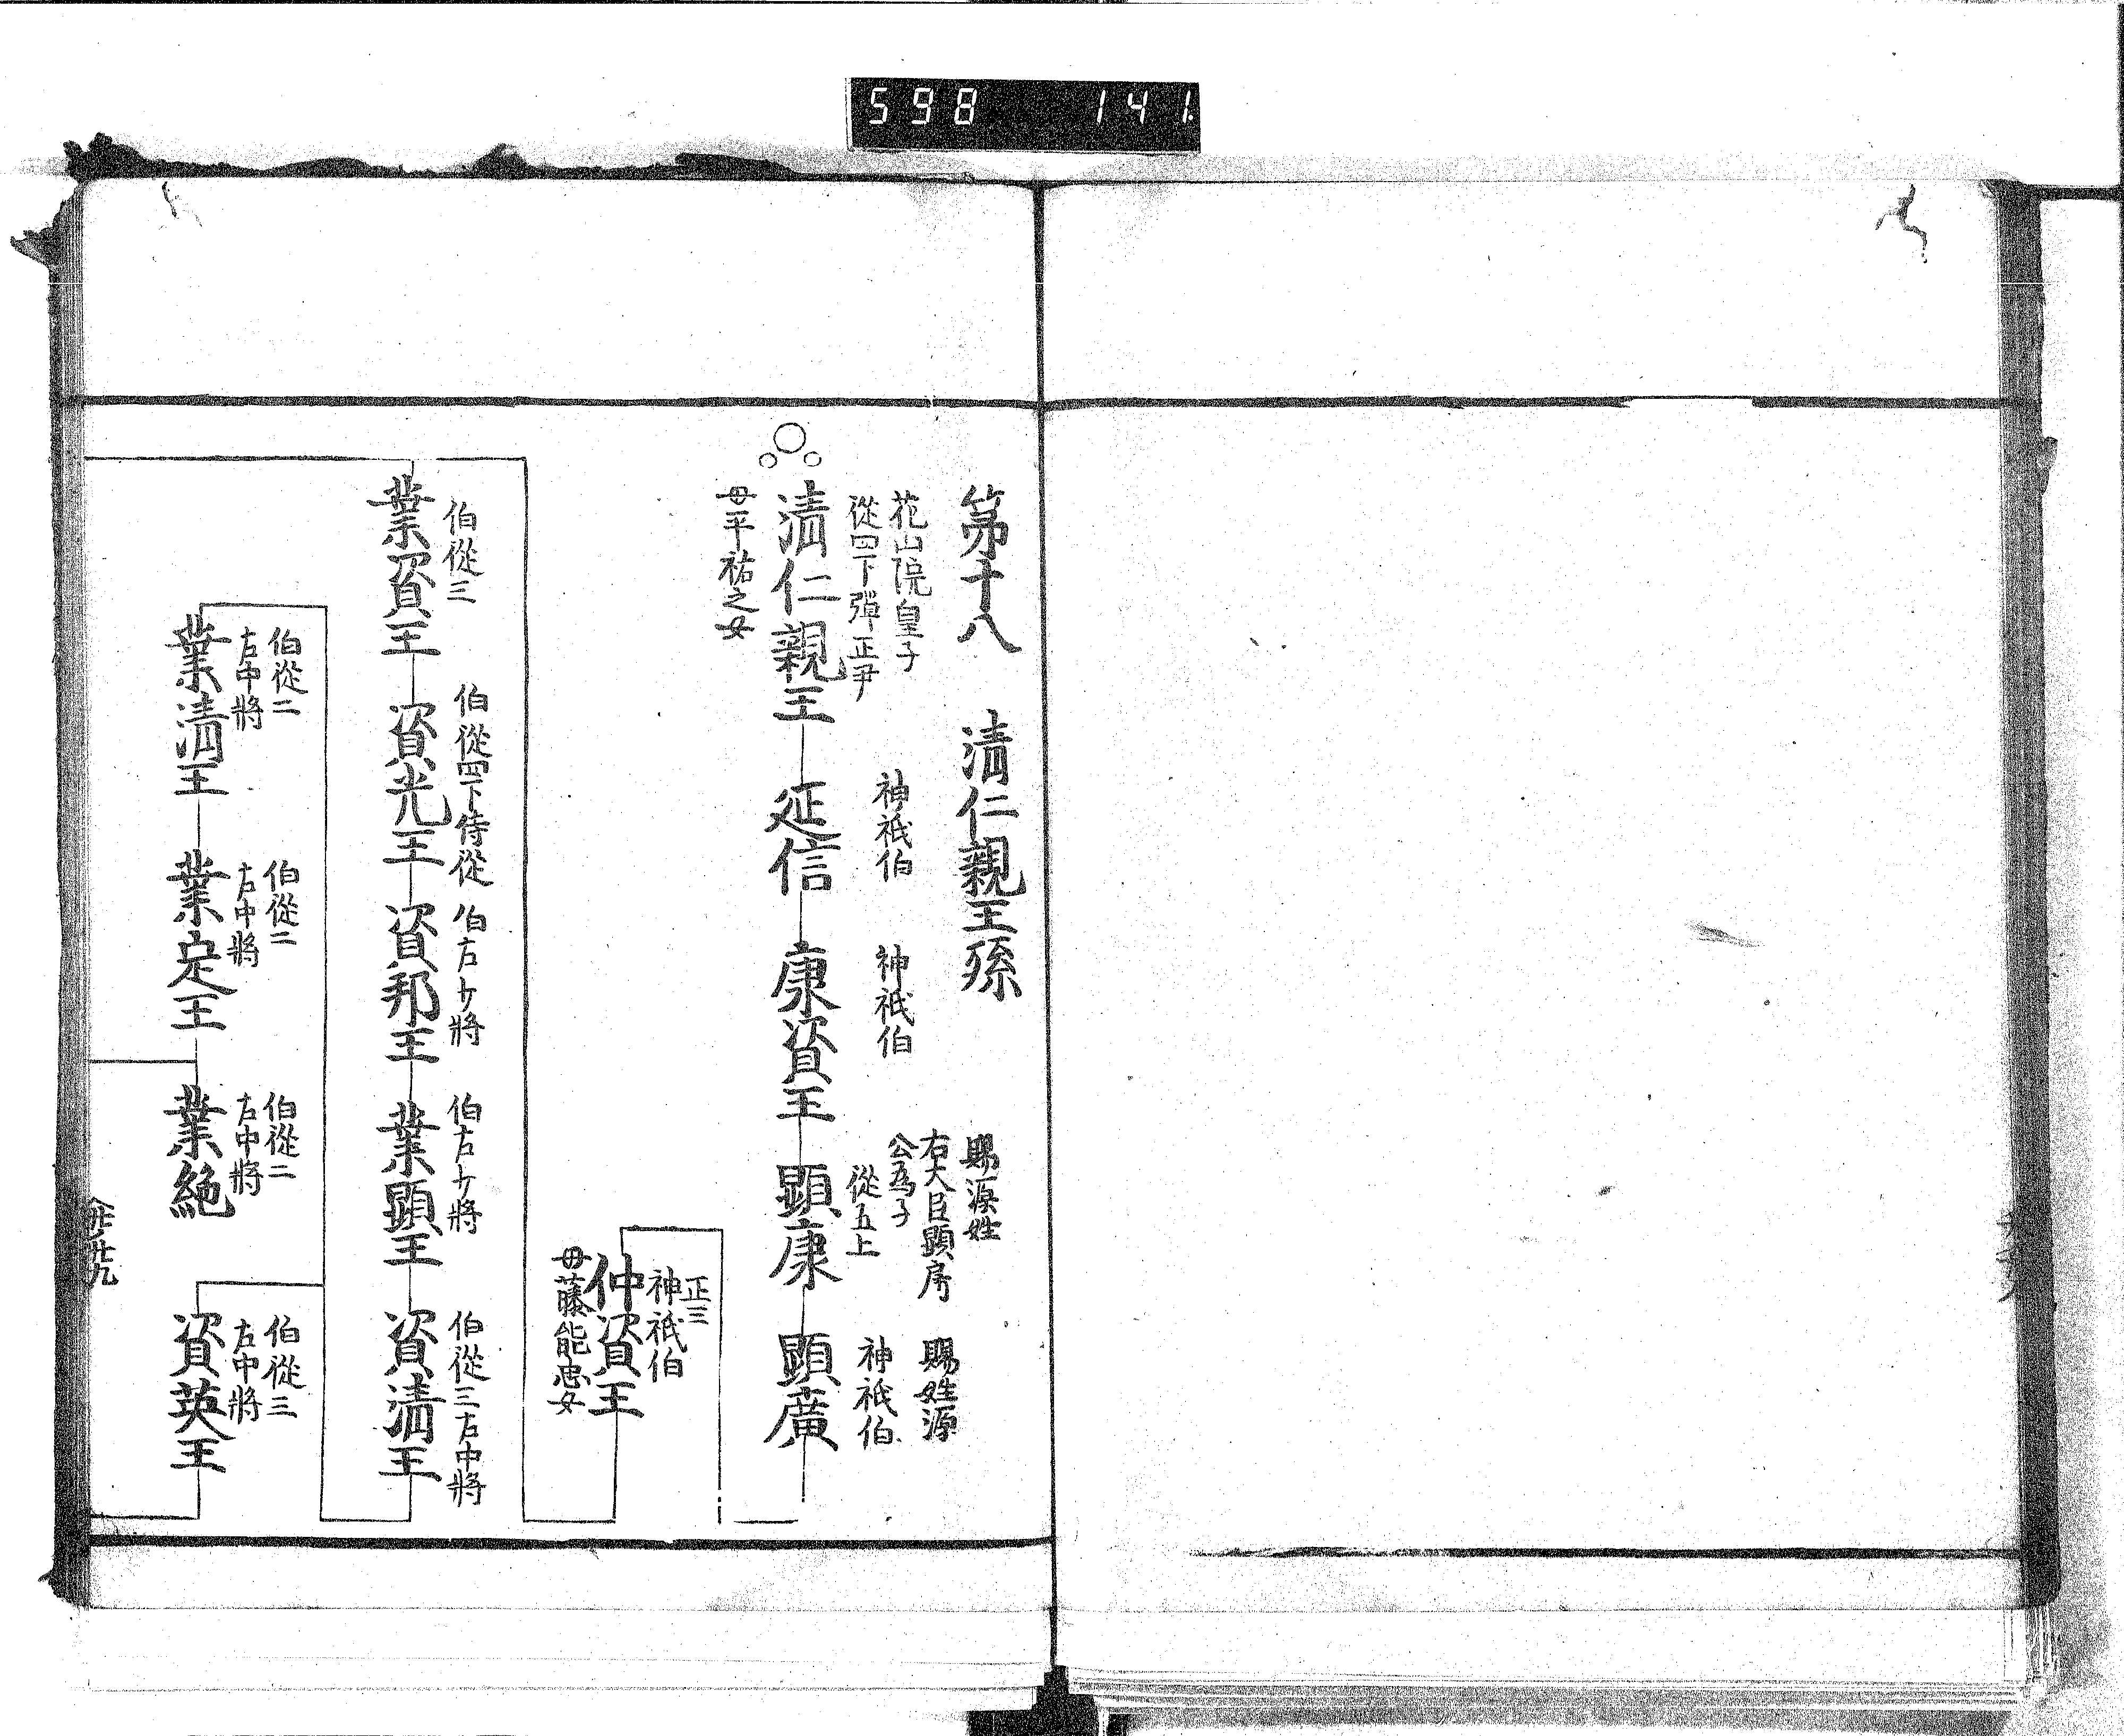 598 141
第十八 清仁親王孫
花山院皇子
從四下彈正尹
清仁親王
母平祐之女
神祇伯
延信
神祇伯
康資王
賜源姓
右大臣顕房
公為子
從五上
顕康
賜姓源
神祇伯
顕廣
正三
神祇伯
仲資王
母藤能忠女
伯從三
業資王
伯從四下侍從
資光王
伯右少將
資邦王
伯右少將
業顕王
伯從三右中將
資清王
伯從二
右中將
業清王
伯從二
右中將
業定王
伯從二
右中將
業絶
伯從三
右中將
資英王